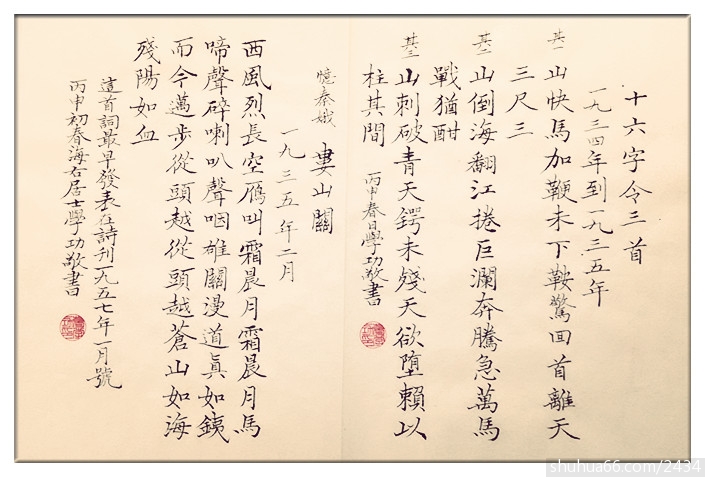 十六字令三首
一九三四年到一九三五年
其一 山快馬加鞭未下鞍驚回首離天
三尺三
其二 山倒海翻江捲巨瀾奔騰急萬馬
戰猶酣
其三 山刺破青天鍔未殘天欲墮賴以
柱其間
丙申春日學功敬書
憶秦娥 婁山關
一九三五年二月
西風烈長空雁叫霜晨月霜晨月馬
啼聲碎喇叭聲咽雄關漫道真如鉄
而今邁步從頭越從頭越蒼山如海
殘陽如血
這首詞最早發表在詩刊一九五七年一月號
丙申初春海右居士學功敬書
shuhua66.com/2434